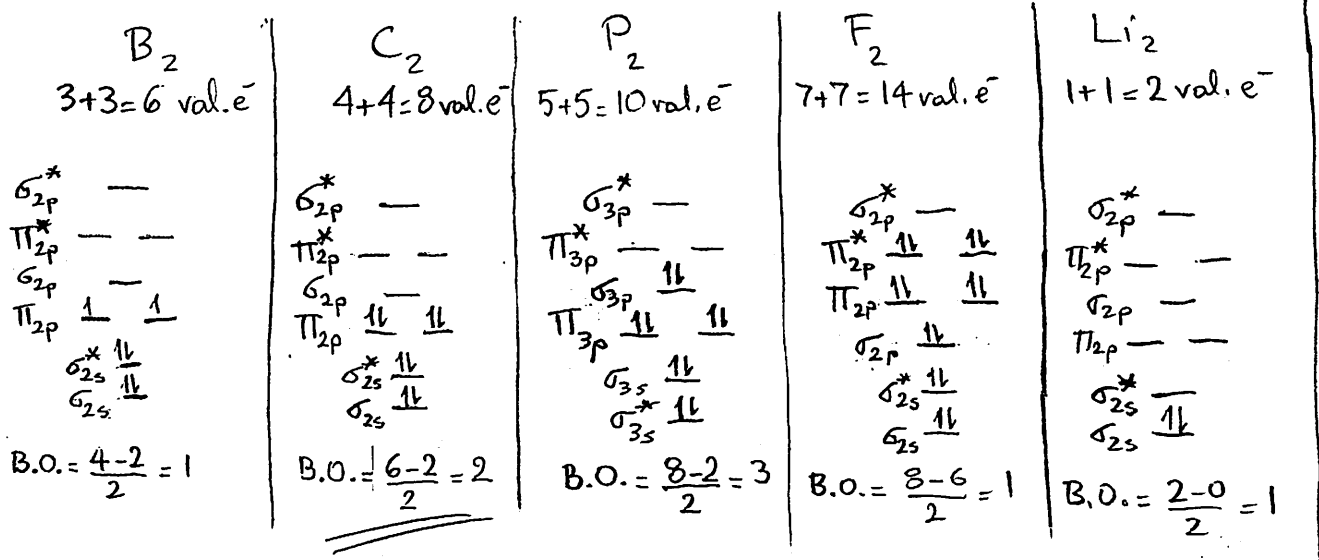 B₂
3+3=6 val.e⁻
σ₂ₚ* —
π₂ₚ* — —
σ₂ₚ —
π₂ₚ 1 1
σ₂ₛ* 1l
σ₂ₛ 1l
B.O.= 4-2/2 = 1
C₂
4+4=8 val.e⁻
σ₂ₚ* —
π₂ₚ* — —
σ₂ₚ —
π₂ₚ 1l 1l
σ₂ₛ* 1l
σ₂ₛ 1l
B.O.= 6-2/2 = 2
P₂
5+5=10 val.e⁻
σ₃ₚ* —
π₃ₚ* — —
σ₃ₚ 1l
π₃ₚ 1l 1l
σ₃ₛ 1l
σ₃ₛ* 1l
B.O.= 8-2/2 = 3
F₂
7+7=14 val.e⁻
σ₂ₚ* —
π₂ₚ* 1l 1l
π₂ₚ 1l 1l
σ₂ₚ 1l
σ₂ₛ* 1l
σ₂ₛ 1l
B.O.= 8-6/2 = 1
Li₂
1+1=2 val.e⁻
σ₂ₚ* —
π₂ₚ* — —
σ₂ₚ —
π₂ₚ — —
σ₂ₛ* —
σ₂ₛ 1l
B.O.= 2-0/2 = 1